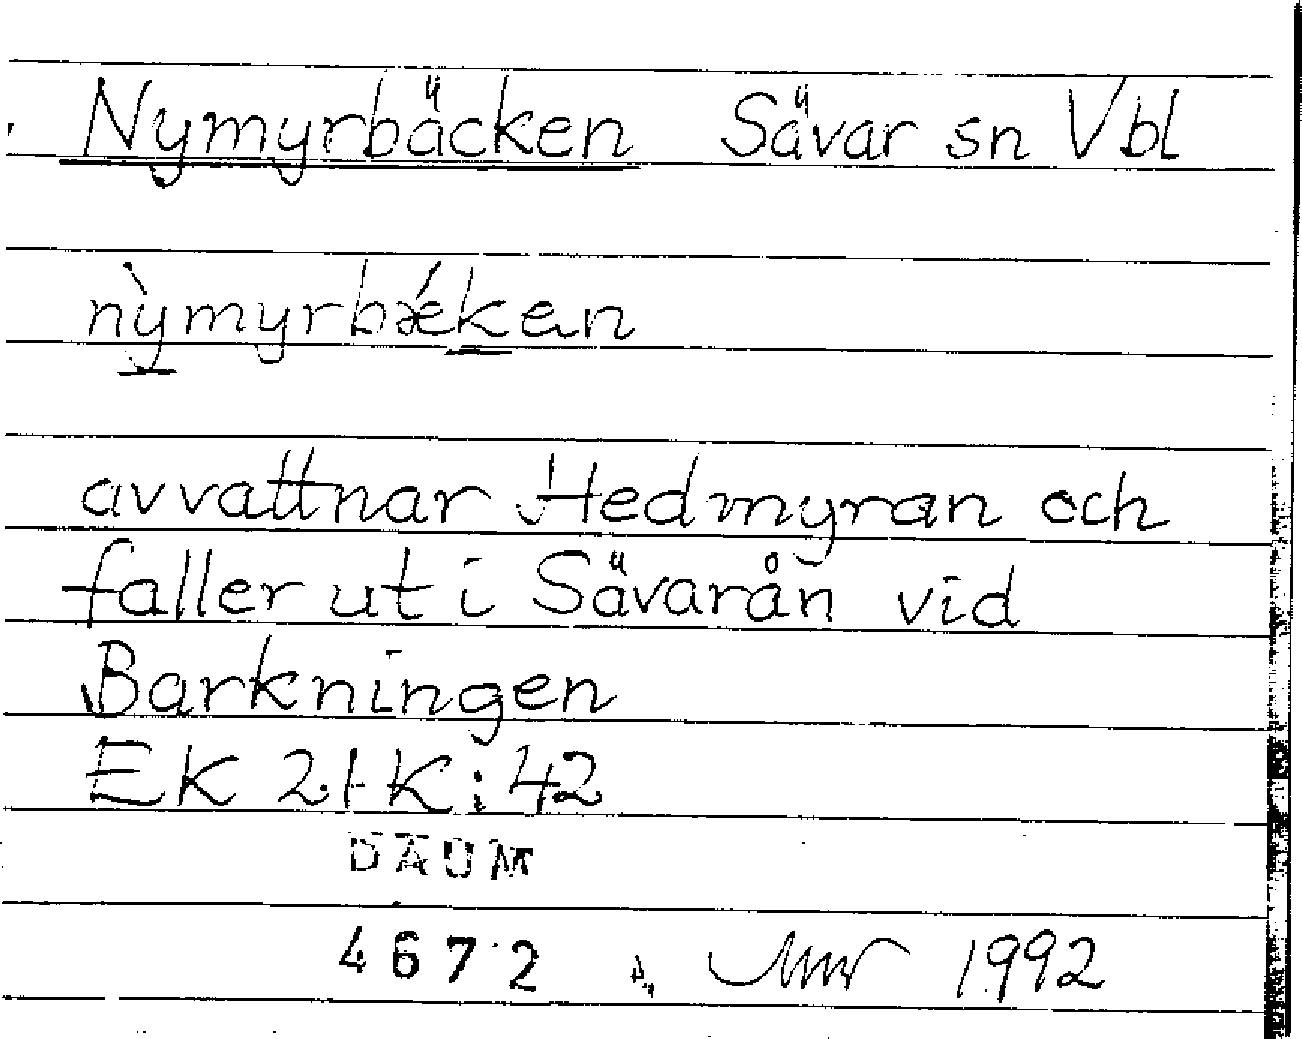 Nymyrbäcken Sävar sn Vbl
nỳmyrbǽken
avvattnar Hedmyran och
faller ut i Sävarån vid
Barkningen
EK 21K:42
DAUM
4672 1992